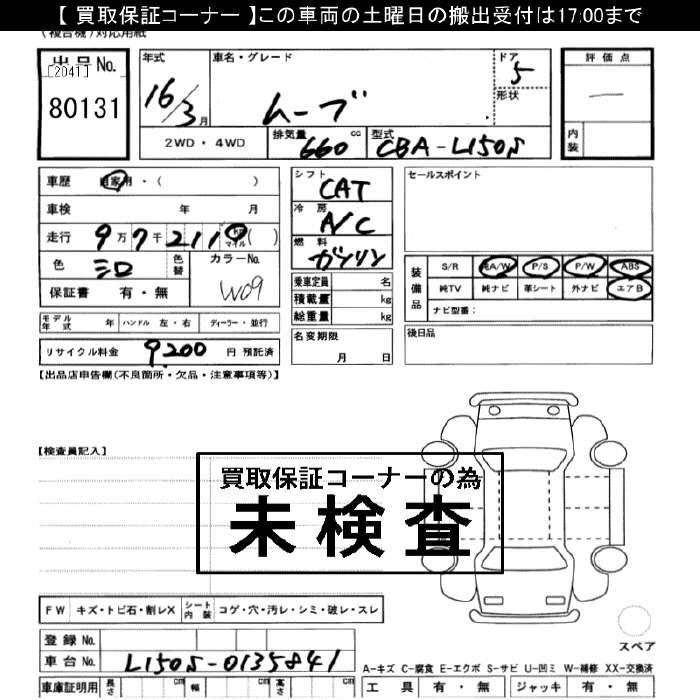 【 買取保証コーナー 】この車両の土曜日の搬出受付は17:00まで
(複合機)対応用紙
出品No.
[2041]
80131
年式
16/3月
車名・グレード
ムーブ
ドア
5
形状
評価点
―
内装
2WD・4WD
排気量 660 cc
型式 CBA-L150S
車歴 自家用・( )
車検 年 月
走行 9万7千211 0 ( )マイル
色
シロ
色替
カラーNo.
W09
保証書 有・無
シフト
CAT
冷房
A/C
燃料
ガソリン
乗車定員 名
積載量 kg
総重量 kg
セールスポイント
装備品
S/R 純A/W P/S P/W ABS
純TV 純ナビ 革シート 外ナビ エアB
ナビ型番:
モデル年式 年 ハンドル 左・右 ディーラー・並行
名変期限
月 日
後日品
リサイクル料金 9,200 円 預託済
【出品店申告欄(不良箇所・欠品・注意事項等)】
【検査員記入】
買取保証コーナーの為
未検査
FW キズ・トビ石・割レX シート内装 コゲ・穴・汚レ・シミ・破レ・スレ
登録No.
車台No. L150S-0135841
スペア
A-キズ C-腐食 E-エクボ S-サビ U-凹ミ W-補修 XX-交換済
車庫証明用 長さ cm 幅 cm 高さ cm
工具 有・無 ジャッキ 有・無